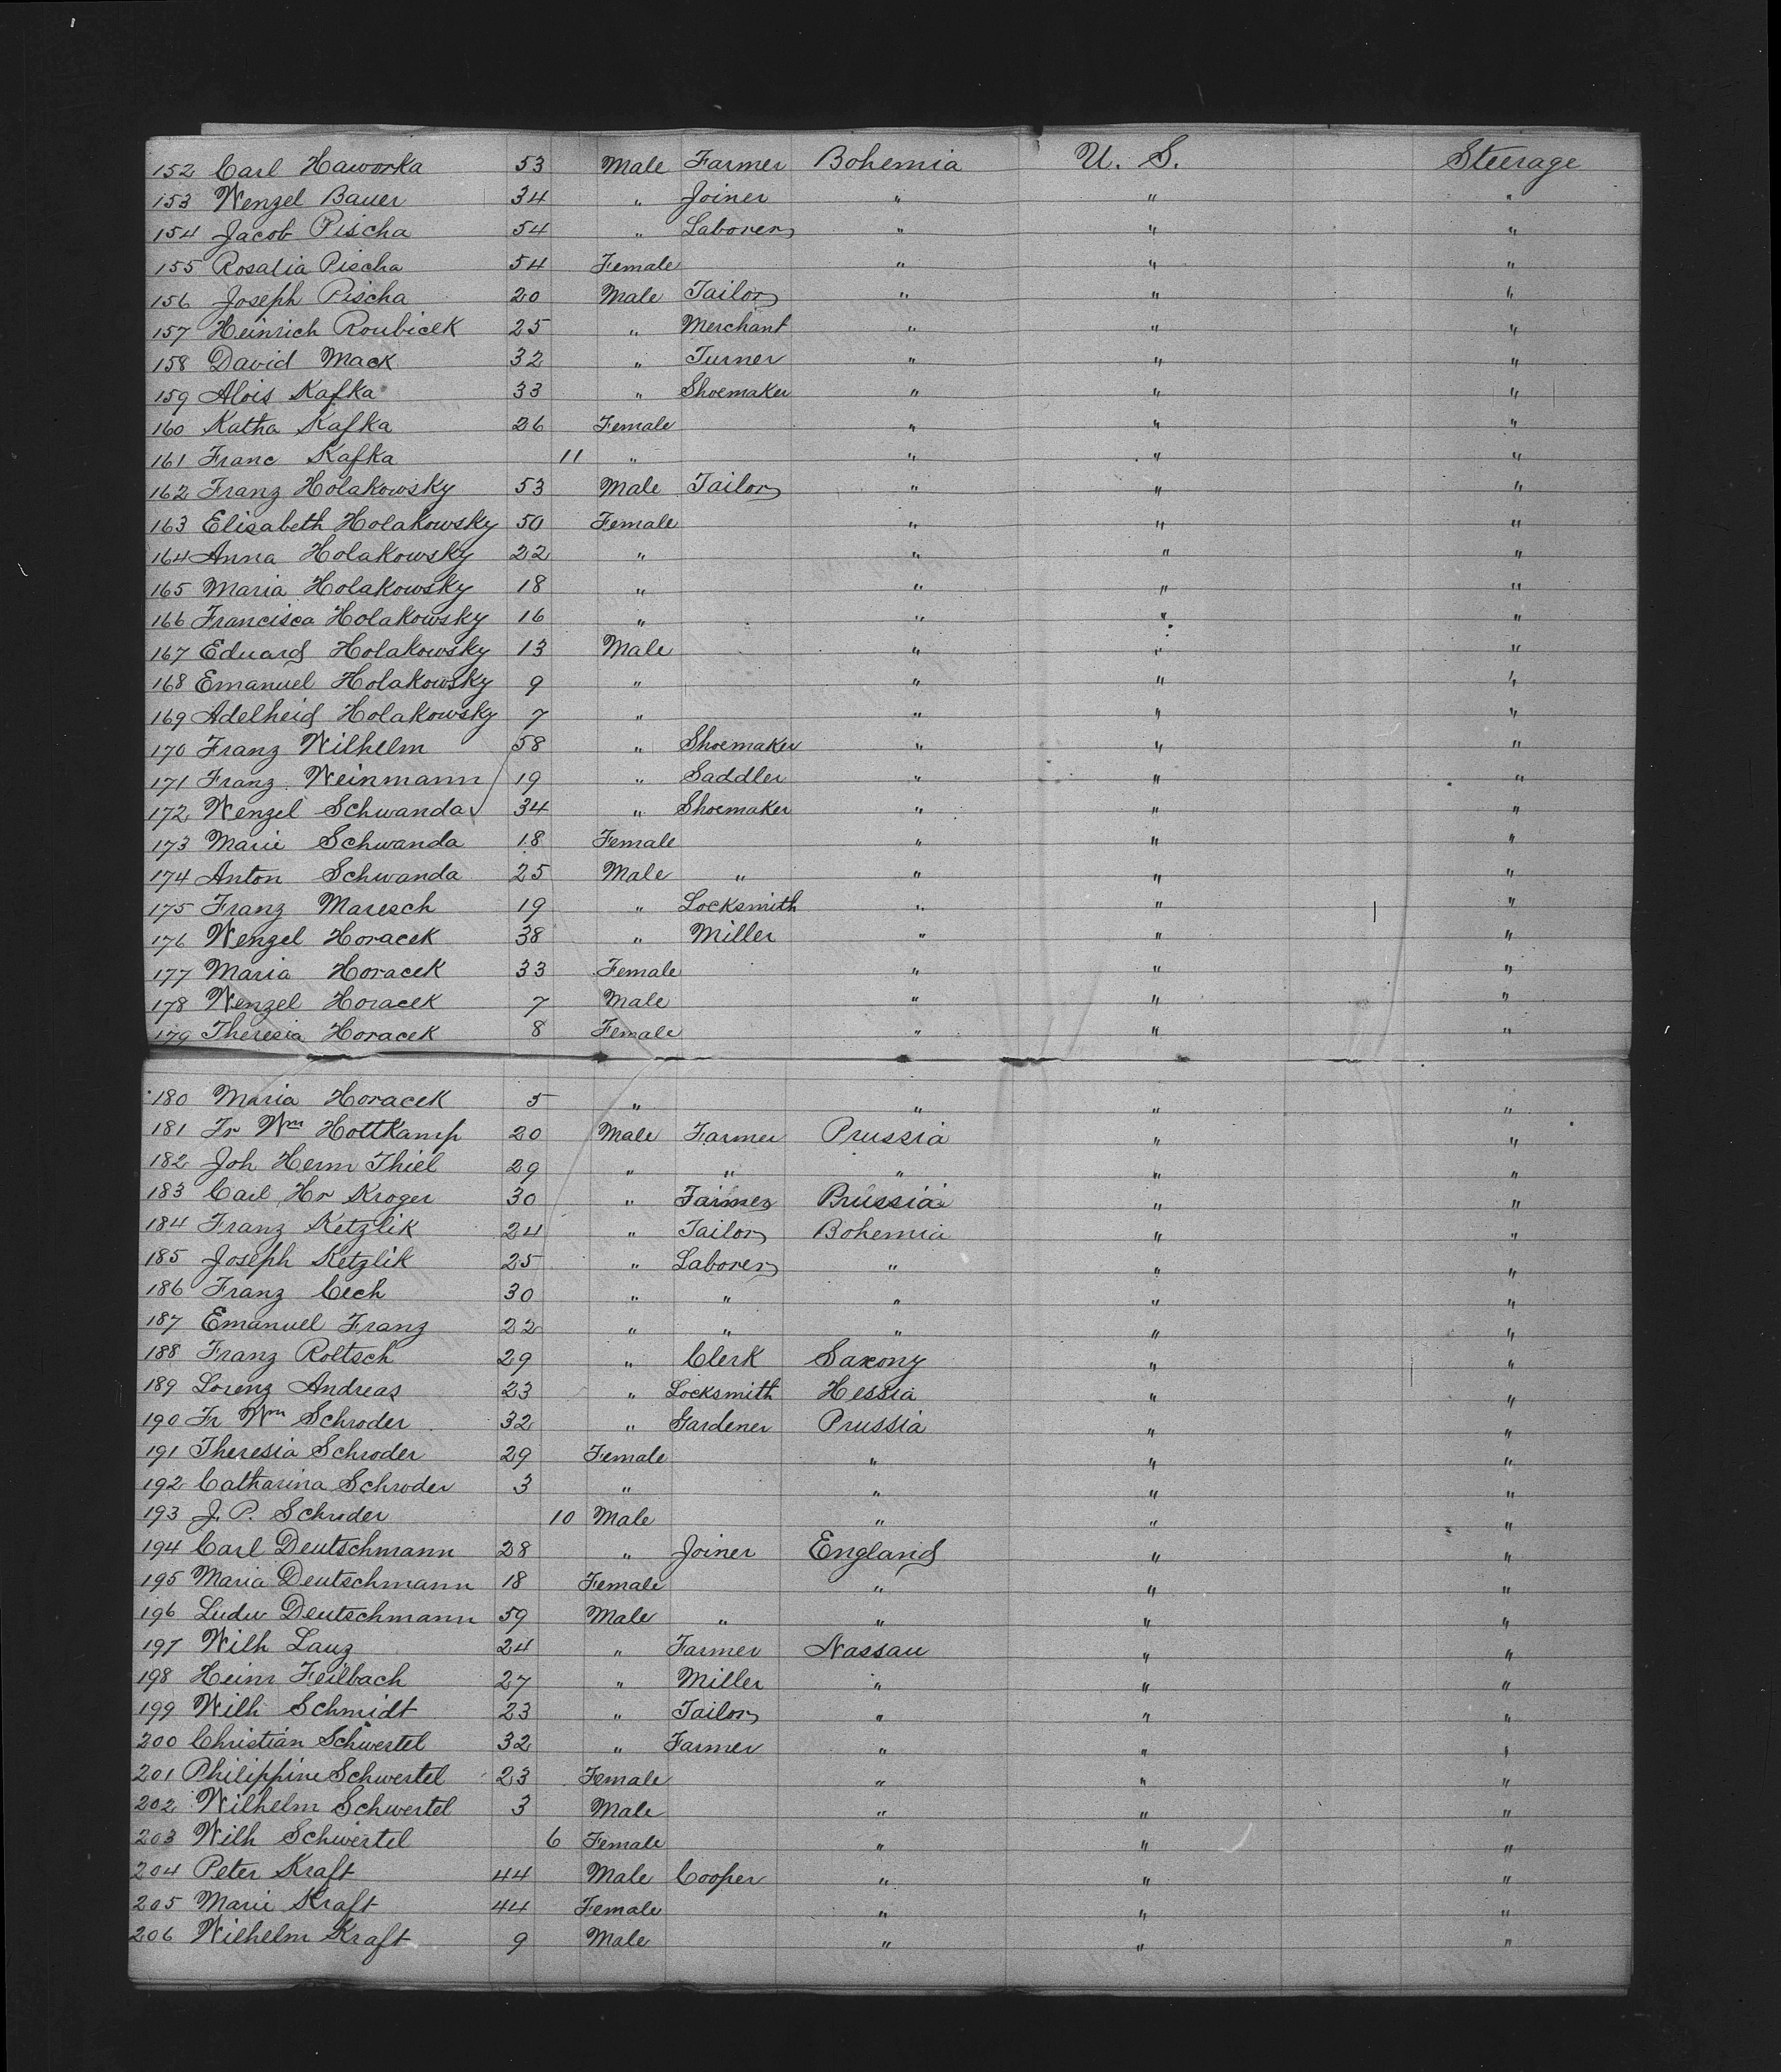 152 Carl Haworka 53 Male Farmer Bohemia U. S. Steerage
153 Wenzel Bauer 34 " Joiner " " "
154 Jacob Pischa 54 " Laborer " " "
155 Rosalia Pischa 54 Female " " "
156 Joseph Pischa 20 Male Tailor " " "
157 Heinrich Roubicek 25 " Merchant " " "
158 David Mack 32 " Turner " " "
159 Alois Kafka 33 " Shoemaker " " "
160 Katha Kafka 26 Female " " "
161 Franc Kafka 11 " " " "
162 Franz Holakowsky 53 Male Tailor " " "
163 Elisabeth Holakowsky 50 Female " " "
164 Anna Holakowsky 22 " " " "
165 Maria Holakowsky 18 " " " "
166 Francisca Holakowsky 16 " " " "
167 Eduard Holakowsky 13 Male " " "
168 Emanuel Holakowsky 9 " " " "
169 Adelheid Holakowsky 7 " " " "
170 Franz Wilhelm 58 " Shoemaker " " "
171 Franz Weinmann 19 " Saddler " " "
172 Wenzel Schwanda 34 " Shoemaker " " "
173 Marie Schwanda 18 Female " " "
174 Anton Schwanda 25 Male " " " "
175 Franz Maresch 19 " Locksmith " " "
176 Wenzel Horacek 38 " Miller " " "
177 Maria Horacek 33 Female " " "
178 Wenzel Horacek 7 Male " " "
179 Theresia Horacek 8 Female " " "
180 Maria Horacek 5 " " " "
181 Fr Wm Hottkamp 20 Male Farmer Prussia " "
182 Joh Herm Thiel 29 " " " " "
183 Carl Hr Kroger 30 " Farmer Prussia " "
184 Franz Ketzlik 24 " Tailor Bohemia " "
185 Joseph Ketzlik 25 " Laborer " " "
186 Franz Cech 30 " " " " "
187 Emanuel Franz 22 " " " " "
188 Franz Roltsch 29 " Clerk Saxony " "
189 Lorenz Andreas 23 " Locksmith Hessia " "
190 Fr Wm Schroder 32 " Gardener Prussia " "
191 Theresia Schroder 29 Female " " "
192 Catharina Schroder 3 " " " "
193 J. P. Schroder 10 Male " " "
194 Carl Deutschmann 28 " Joiner England " "
195 Maria Deutschmann 18 Female " " "
196 Ludw Deutschmann 59 Male " " " "
197 Wilh Lauz 24 " Farmer Nassau " "
198 Heinr Feilbach 27 " Miller " " "
199 Wilh Schmidt 23 " Tailor " " "
200 Christian Schwertel 32 " Farmer " " "
201 Philippine Schwertel 23 Female " " "
202 Wilhelm Schwertel 3 Male " " "
203 Wilh Schwertel 6 Female " " "
204 Peter Kraft 44 Male Cooper " " "
205 Marie Kraft 44 Female " " "
206 Wilhelm Kraft 9 Male " " "